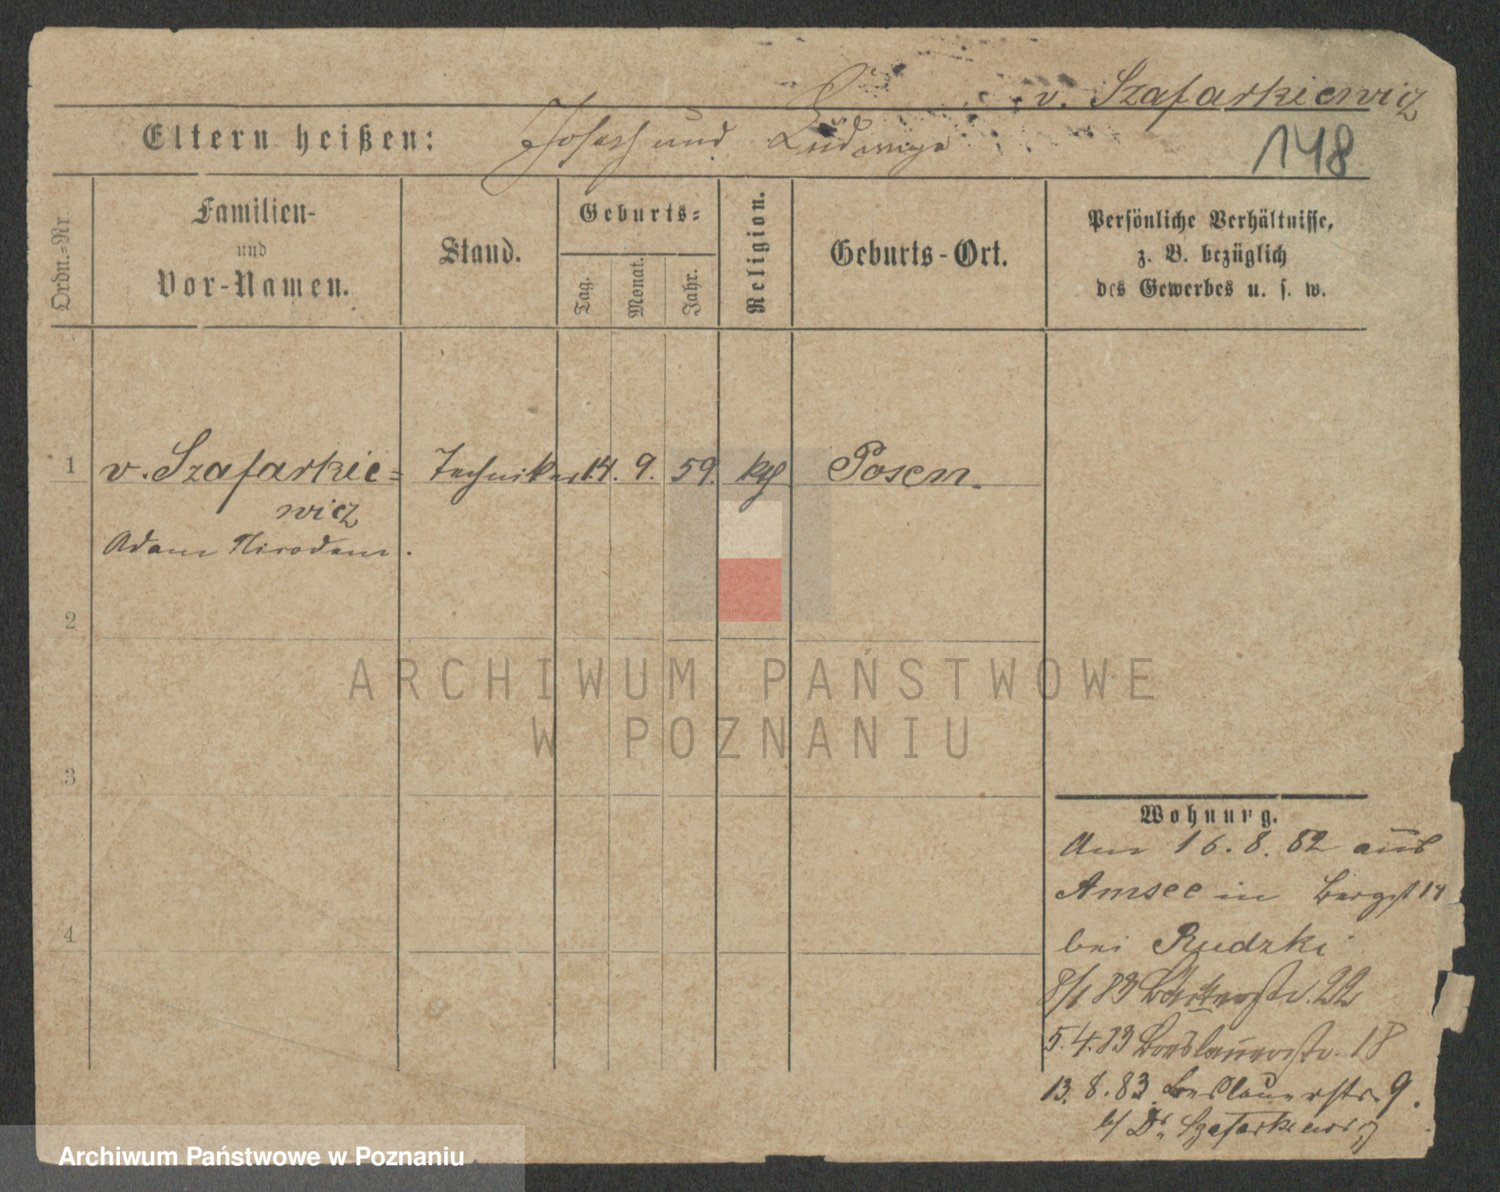 v. Szafarkiewicz
Eltern heißen: Joseph und Ludwiga
148
Ordn.-Nr.
Familien-
und
Vor-Namen.
Stand.
Geburts-
Tag.
Monat.
Jahr.
Religion.
Geburts-Ort.
Persönliche Verhältnisse,
z. B. bezüglich
des Gewerbes u. s. w.
1 v. Szafarkie= Techniker 14. 9. 59. kth Posen.
wicz
Adam Nicodem.
2
3
4
ARCHIWUM PAŃSTWOWE
W POZNANIU
Wohnung.
Am 16. 8. 82 aus
Amsee in Bergst 14
bei Rudzki
83 22
5. 4. 83 Breslauerstr. 18
13. 8. 83. Breslauerstr. 9.
b/ Dr. Szafarkiewicz
Archiwum Państwowe w Poznaniu